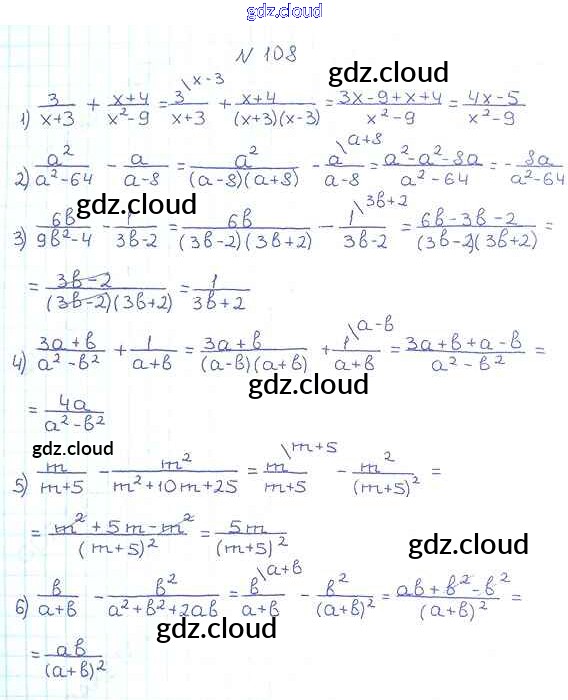 gdz.cloud
N 108
gdz.cloud
1) 3/(x+3) + (x+4)/(x²-9) = 3\x-3/(x+3) + (x+4)/((x+3)(x-3)) = (3x-9+x+4)/(x²-9) = (4x-5)/(x²-9)
2) a²/(a²-64) - a/(a-8) = a²/((a-8)(a+8)) - a\a+8/(a-8) = (a²-a²-8a)/(a²-64) = -8a/(a²-64)
gdz.cloud
3) 6b/(9b²-4) - 1/(3b-2) = 6b/((3b-2)(3b+2)) - 1\3b+2/(3b-2) = (6b-3b-2)/((3b-2)(3b+2)) =
= (3b-2)/((3b-2)(3b+2)) = 1/(3b+2)
4) (3a+b)/(a²-b²) + 1/(a+b) = (3a+b)/((a-b)(a+b)) + 1\a-b/(a+b) = (3a+b+a-b)/(a²-b²) =
gdz.cloud
= 4a/(a²-b²)
gdz.cloud
5) m/(m+5) - m²/(m²+10m+25) = m\m+5/(m+5) - m²/(m+5)² =
= (m²+5m-m²)/(m+5)² = 5m/(m+5)²
gdz.cloud
6) b/(a+b) - b²/(a²+b²+2ab) = b\a+b/(a+b) - b²/(a+b)² = (ab+b²-b²)/(a+b)² =
gdz.cloud
= ab/(a+b)²
gdz.cloud